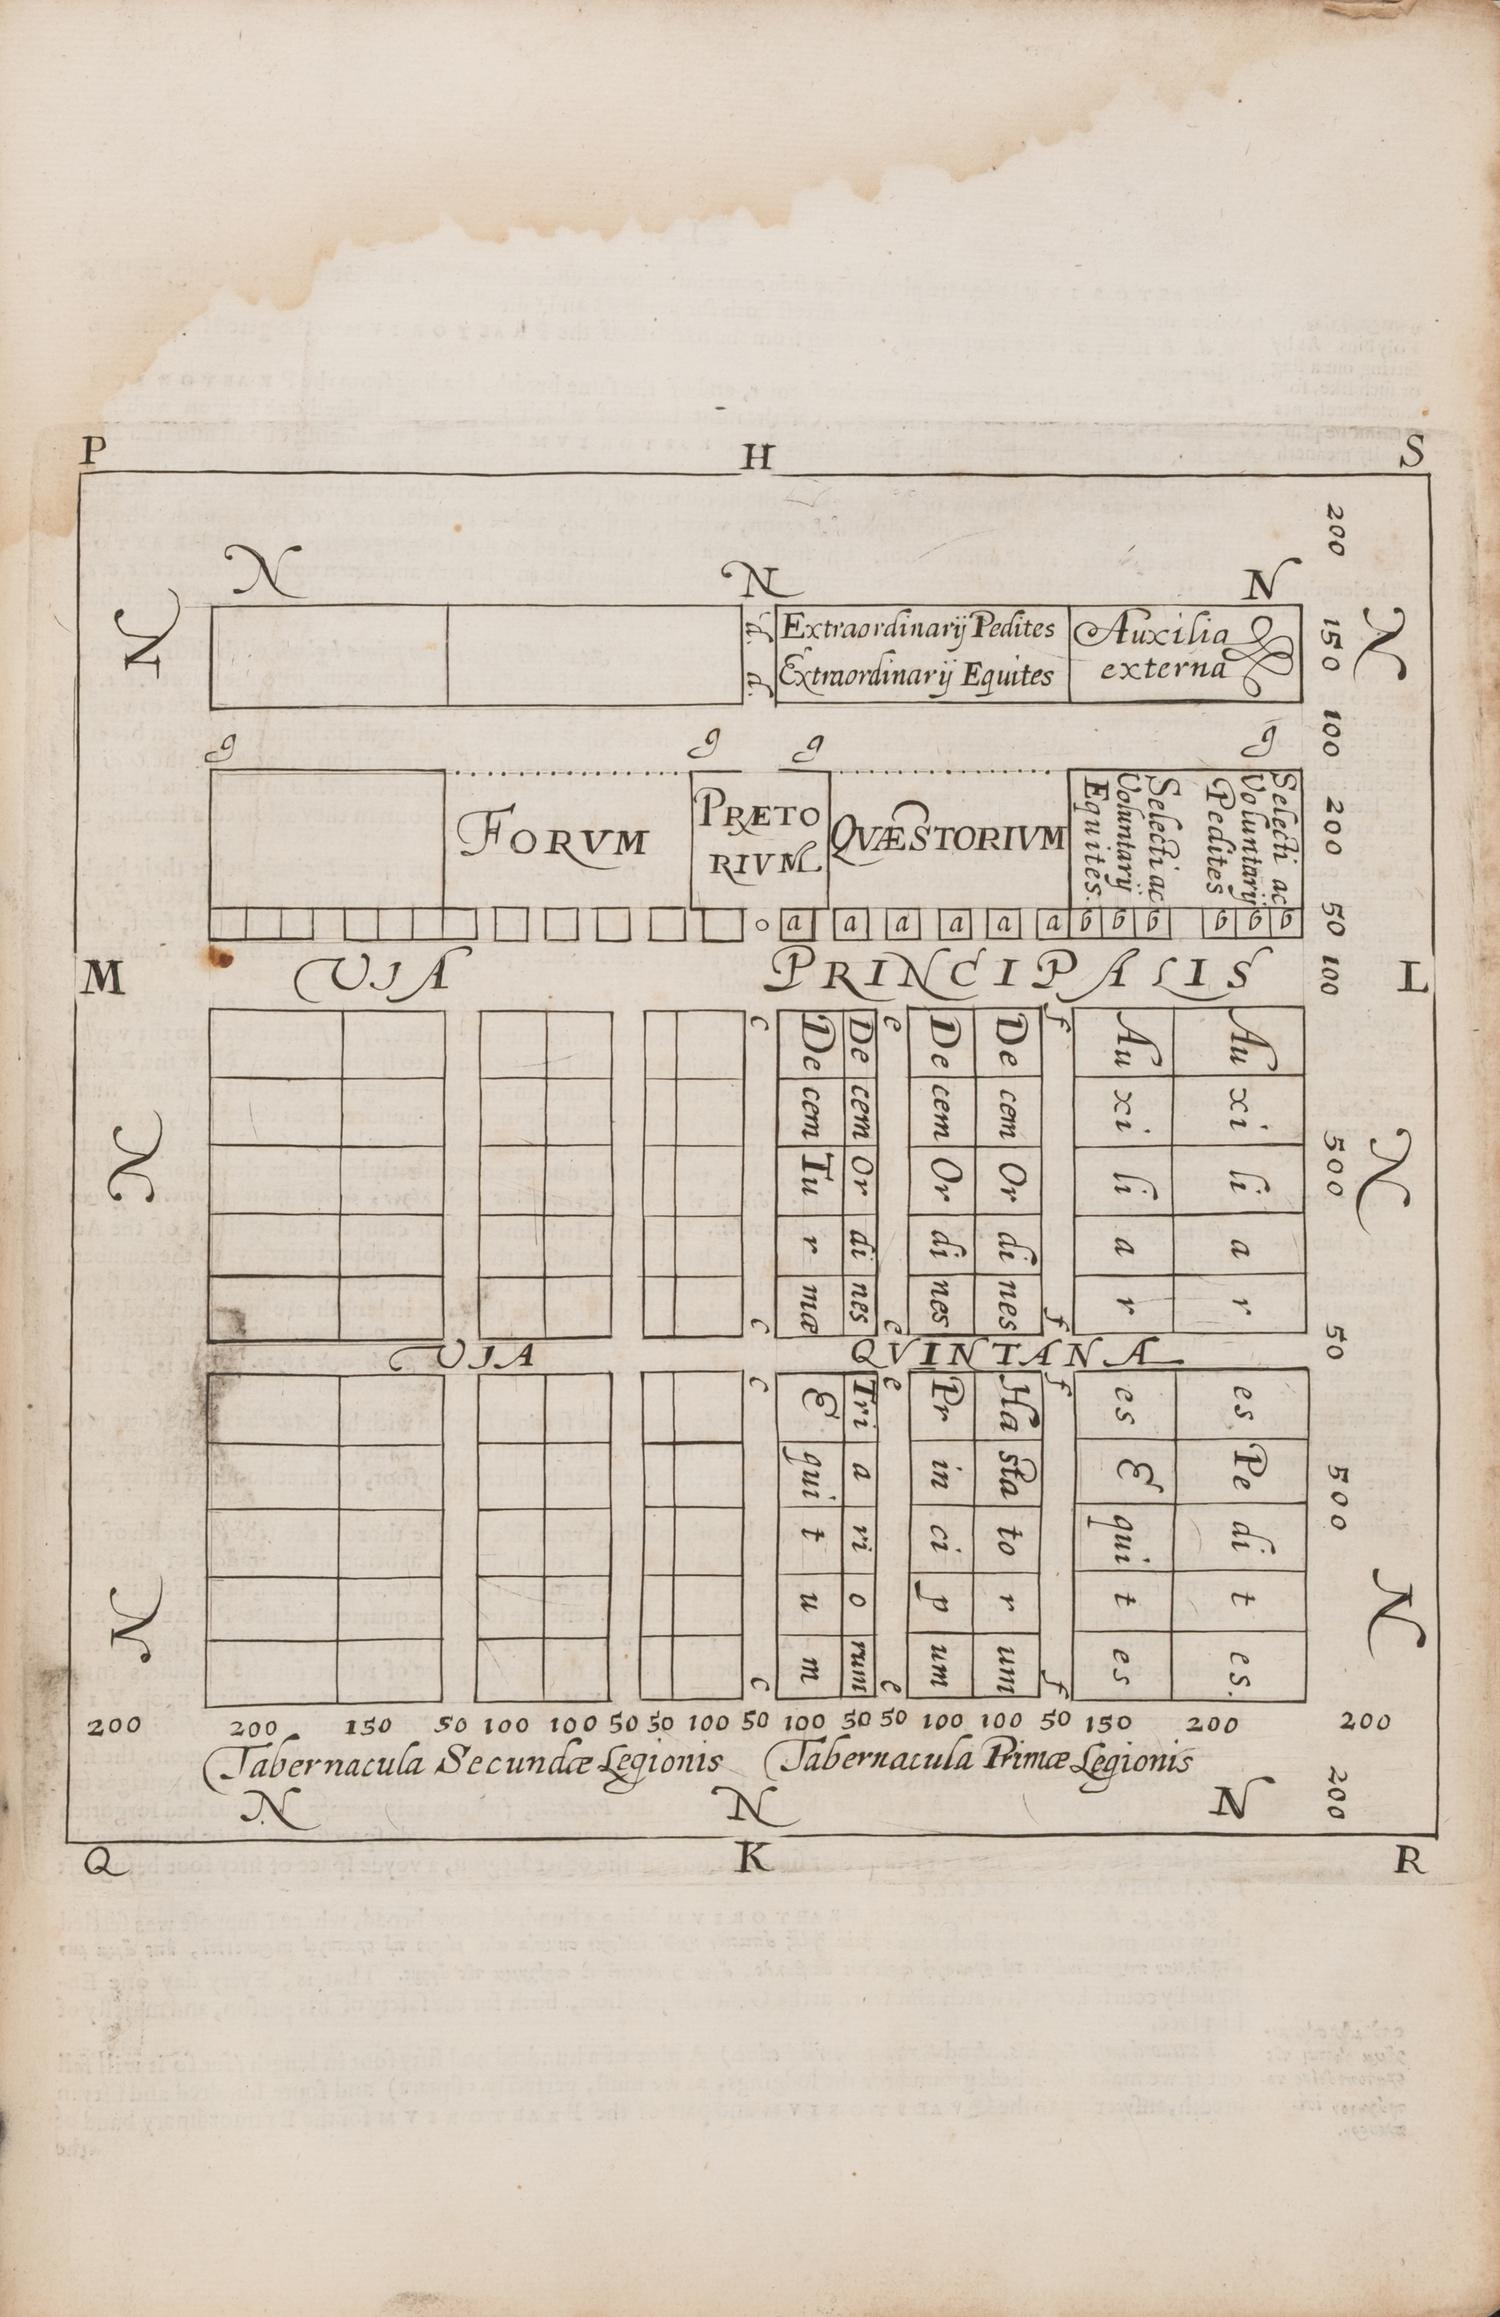 P H S
200
N N N
N N
P. Extraordinarij Pedites Auxilia 150
P. Extraordinarij Equites externa
g g g g 100
FORVM PRÆTO QVÆSTORIVM 200
RIVM
Selecti ac
Voluntarij
Equites.
Selecti ac
Voluntarij
Pedites
a a a a a a b b b b b b 50
M VIA PRINCIPALIS 100 L
c e f
De cem Tu r mæ
De cem Or di nes
De cem Or di nes
De cem Or di nes
Au xi li a r
Au xi li a r
N 500 N
c e f
VIA QVINTANA 50
c e f
E qui t u m
Tri a ri o rum
Pr in ci p um
Ha sta to r um
es E qui t es
es Pe di t es.
500
N N
c e f
200 200 150 50 100 100 50 50 100 50 100 50 50 100 100 50 150 200 200
Tabernacula Secundæ Legionis Tabernacula Primæ Legionis
N N N 200
Q K R